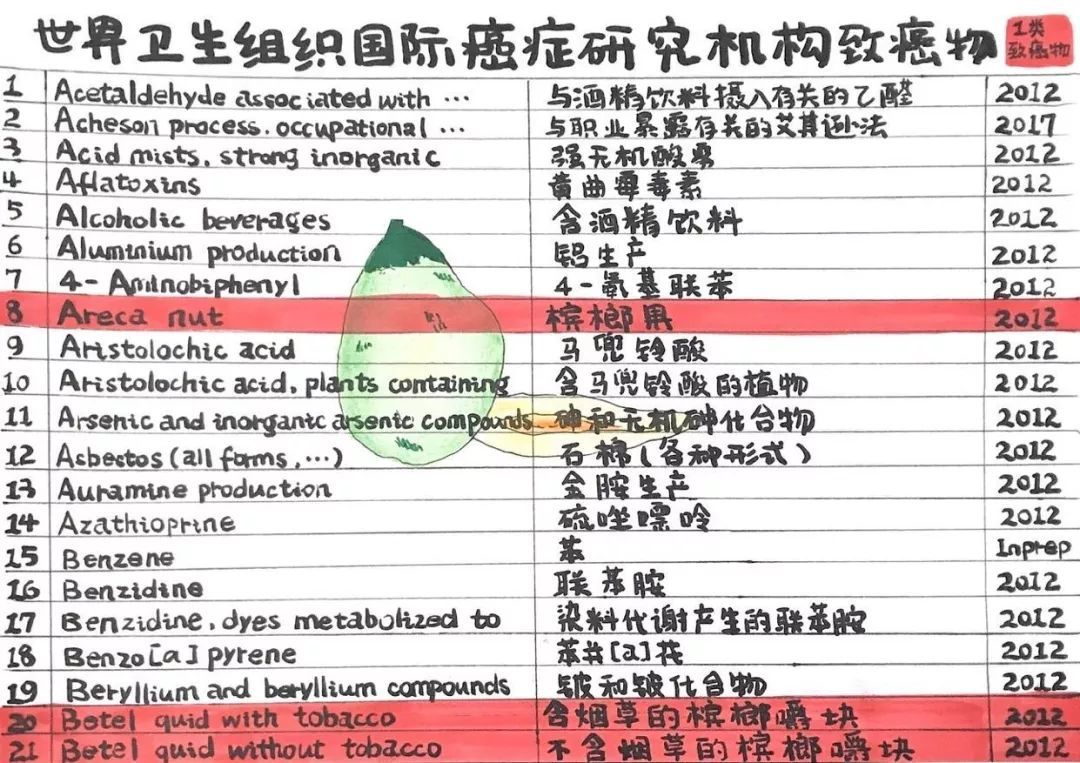 世界卫生组织国际癌症研究机构致癌物 1类致癌物
1 Acetaldehyde associated with ... 与酒精饮料摄入有关的乙醛 2012
2 Acheson process, occupational ... 与职业暴露有关的艾其逊法 2017
3 Acid mists, strong inorganic 强无机酸雾 2012
4 Aflatoxins 黄曲霉毒素 2012
5 Alcoholic beverages 含酒精饮料 2012
6 Aluminium production 铝生产 2012
7 4-Aminobiphenyl 4-氨基联苯 2012
8 Areca nut 槟榔果 2012
9 Aristolochic acid 马兜铃酸 2012
10 Aristolochic acid, plants containing 含马兜铃酸的植物 2012
11 Arsenic and inorganic arsenic compounds 砷和无机砷化合物 2012
12 Asbestos (all forms, ...) 石棉(各种形式) 2012
13 Auramine production 金胺生产 2012
14 Azathioprine 硫唑嘌呤 2012
15 Benzene 苯 Inprep
16 Benzidine 联苯胺 2012
17 Benzidine, dyes metabolized to 染料代谢产生的联苯胺 2012
18 Benzo[a]pyrene 苯并[a]芘 2012
19 Beryllium and beryllium compounds 铍和铍化合物 2012
20 Betel quid with tobacco 含烟草的槟榔嚼块 2012
21 Betel quid without tobacco 不含烟草的槟榔嚼块 2012